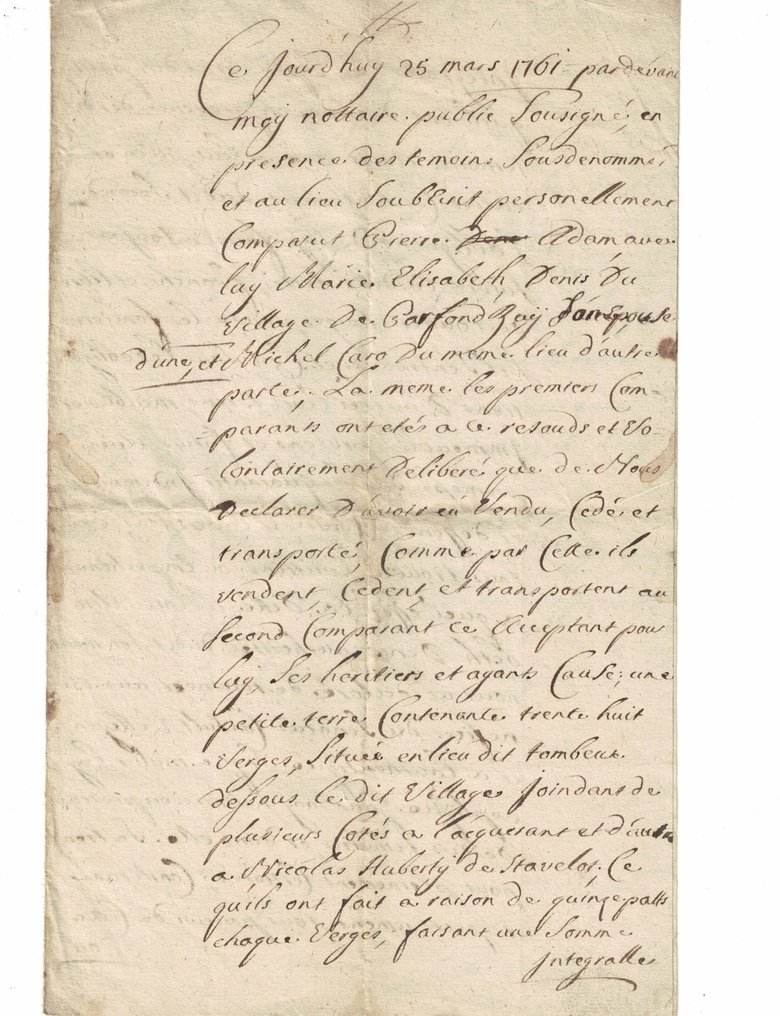 Ce jourd'huy 25 mars 1761 = pardevant
moÿ nottaire publie Sousigné, en
presence des temoins Sousdenommé
et au lieu Soubscrit personellement
Comparut Pierre Adam avec
luÿ Marie Elisabeth Denis Du
Village De Parfond Ruÿ Son Epouse
d'une, et Michel Caro Du meme lieu d'autre
parte, La meme les premiers Com-
parants ont etés a ce resouds et Vo-
lontairement Deliberé que de Nous
Declarer D'avoir eû Vendu, Cedé, et
transporté, Comme par Cette ils
vendent, Cedent, et transportent au
second Comparant ce Acceptant pour
luÿ Ses heritiers et aÿants Cause; une
petite terre Contenante trente huit
Verges, Situés en lieu dit tombeux
dessous le dit Village Joindant de
plusieurs Cotés a l'acquerant et d'autre
a Nicolas Huberty de Stavelot. Ce
qu'ils ont fait a raison de quinze patts
chaque Verges, faisant une Somme
Integralle